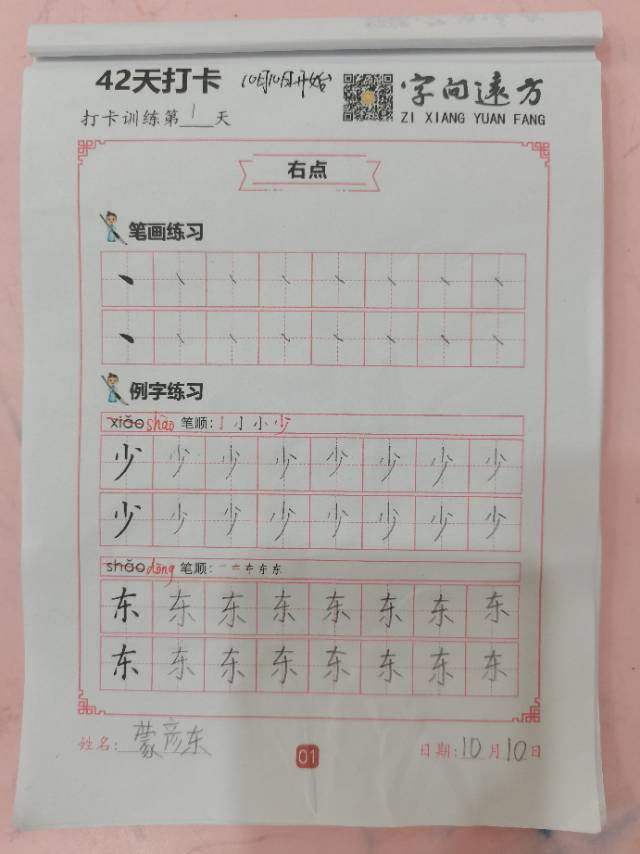 42天打卡 10月10日开始 字向远方
打卡训练第1天 ZI XIANG YUAN FANG
右点
笔画练习
例字练习
xiǎo shǎo 笔顺: 亅 小 小 少
少 少 少 少 少 少 少 少
少 少 少 少 少 少 少 少
shǎo dōng 笔顺: 一 𠂇 东 东 东
东 东 东 东 东 东 东 东
东 东 东 东 东 东 东 东
姓名: 蒙彦东 01 日期: 10月10日